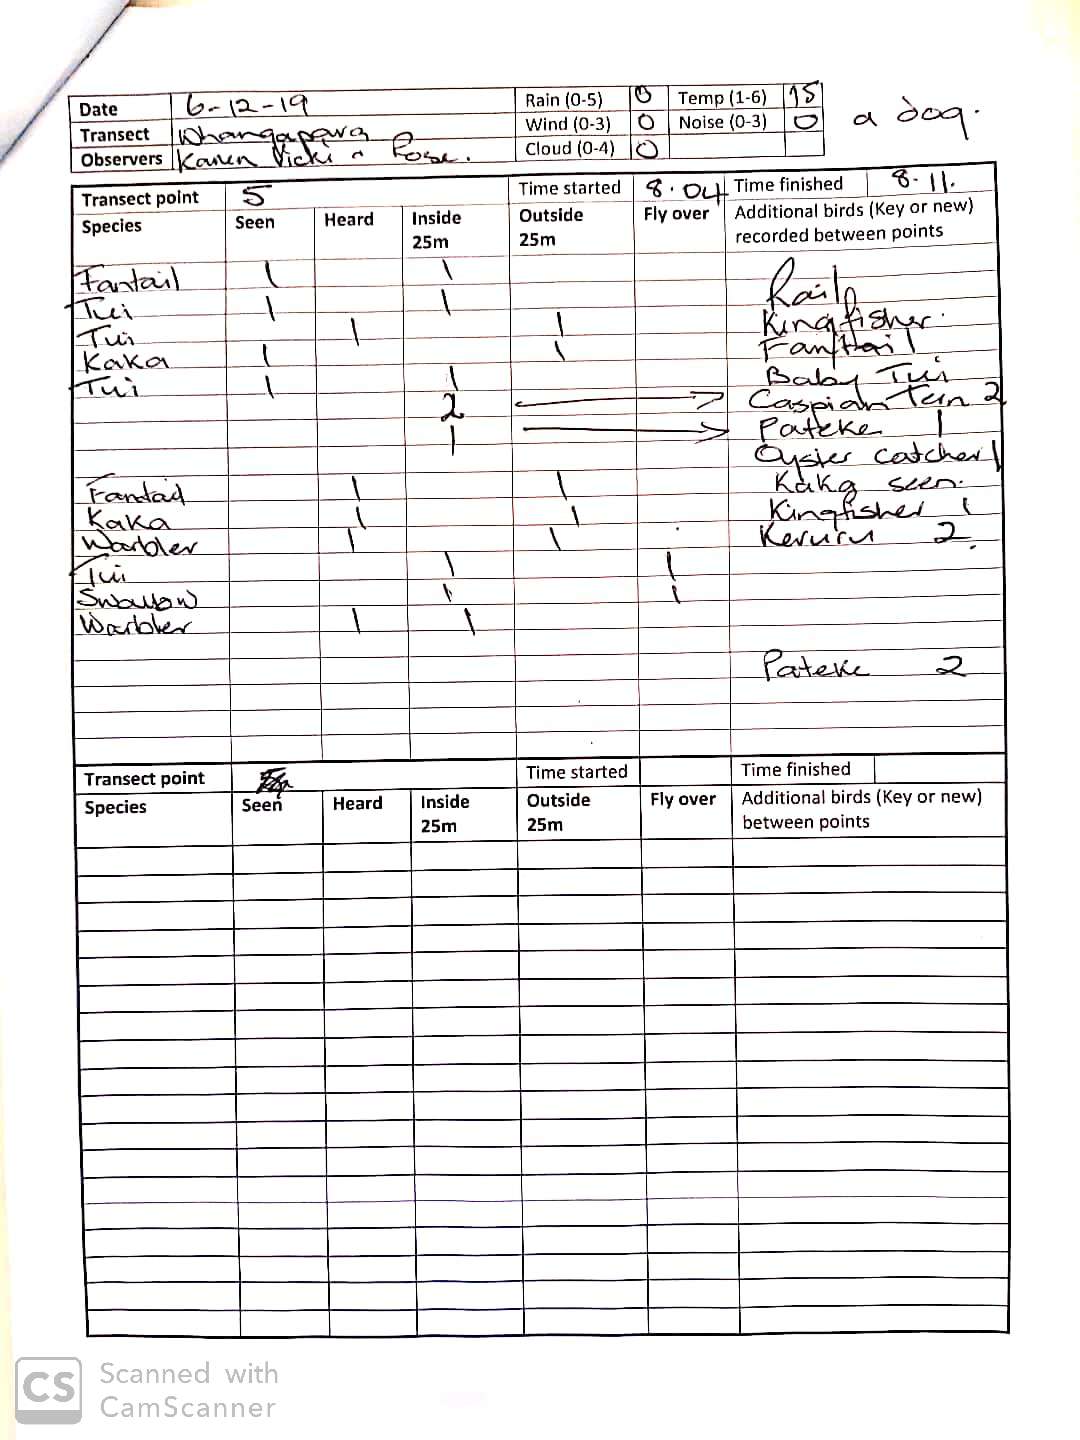 Date 6-12-19 Rain (0-5) 0 Temp (1-6) 15
Transect Whangapara Wind (0-3) 0 Noise (0-3) 0 a dog.
Observers Karen Vicki & Rose. Cloud (0-4) 0
Transect point 5 Time started 8.04 Time finished 8.11.
Species Seen Heard Inside 25m Outside 25m Fly over Additional birds (Key or new) recorded between points
Fantail 1 1 Rail
Tui 1 1
Tui 1 1 Kingfisher.
Kaka 1 1 Fantail 1
Tui 1 1 Baby Tui
2 → Caspian Tern 2
1 → Pateke 1
Oyster catcher 1
Fantail 1 1 Kaka seen.
Kaka 1 1 Kingfisher 1
Warbler 1 1 Keruru 2.
Tui 1 1
Swallow 1 1
Warbler 1 1
Pateke 2
Transect point Time started Time finished
Species Seen Heard Inside 25m Outside 25m Fly over Additional birds (Key or new) between points
CS Scanned with
CamScanner